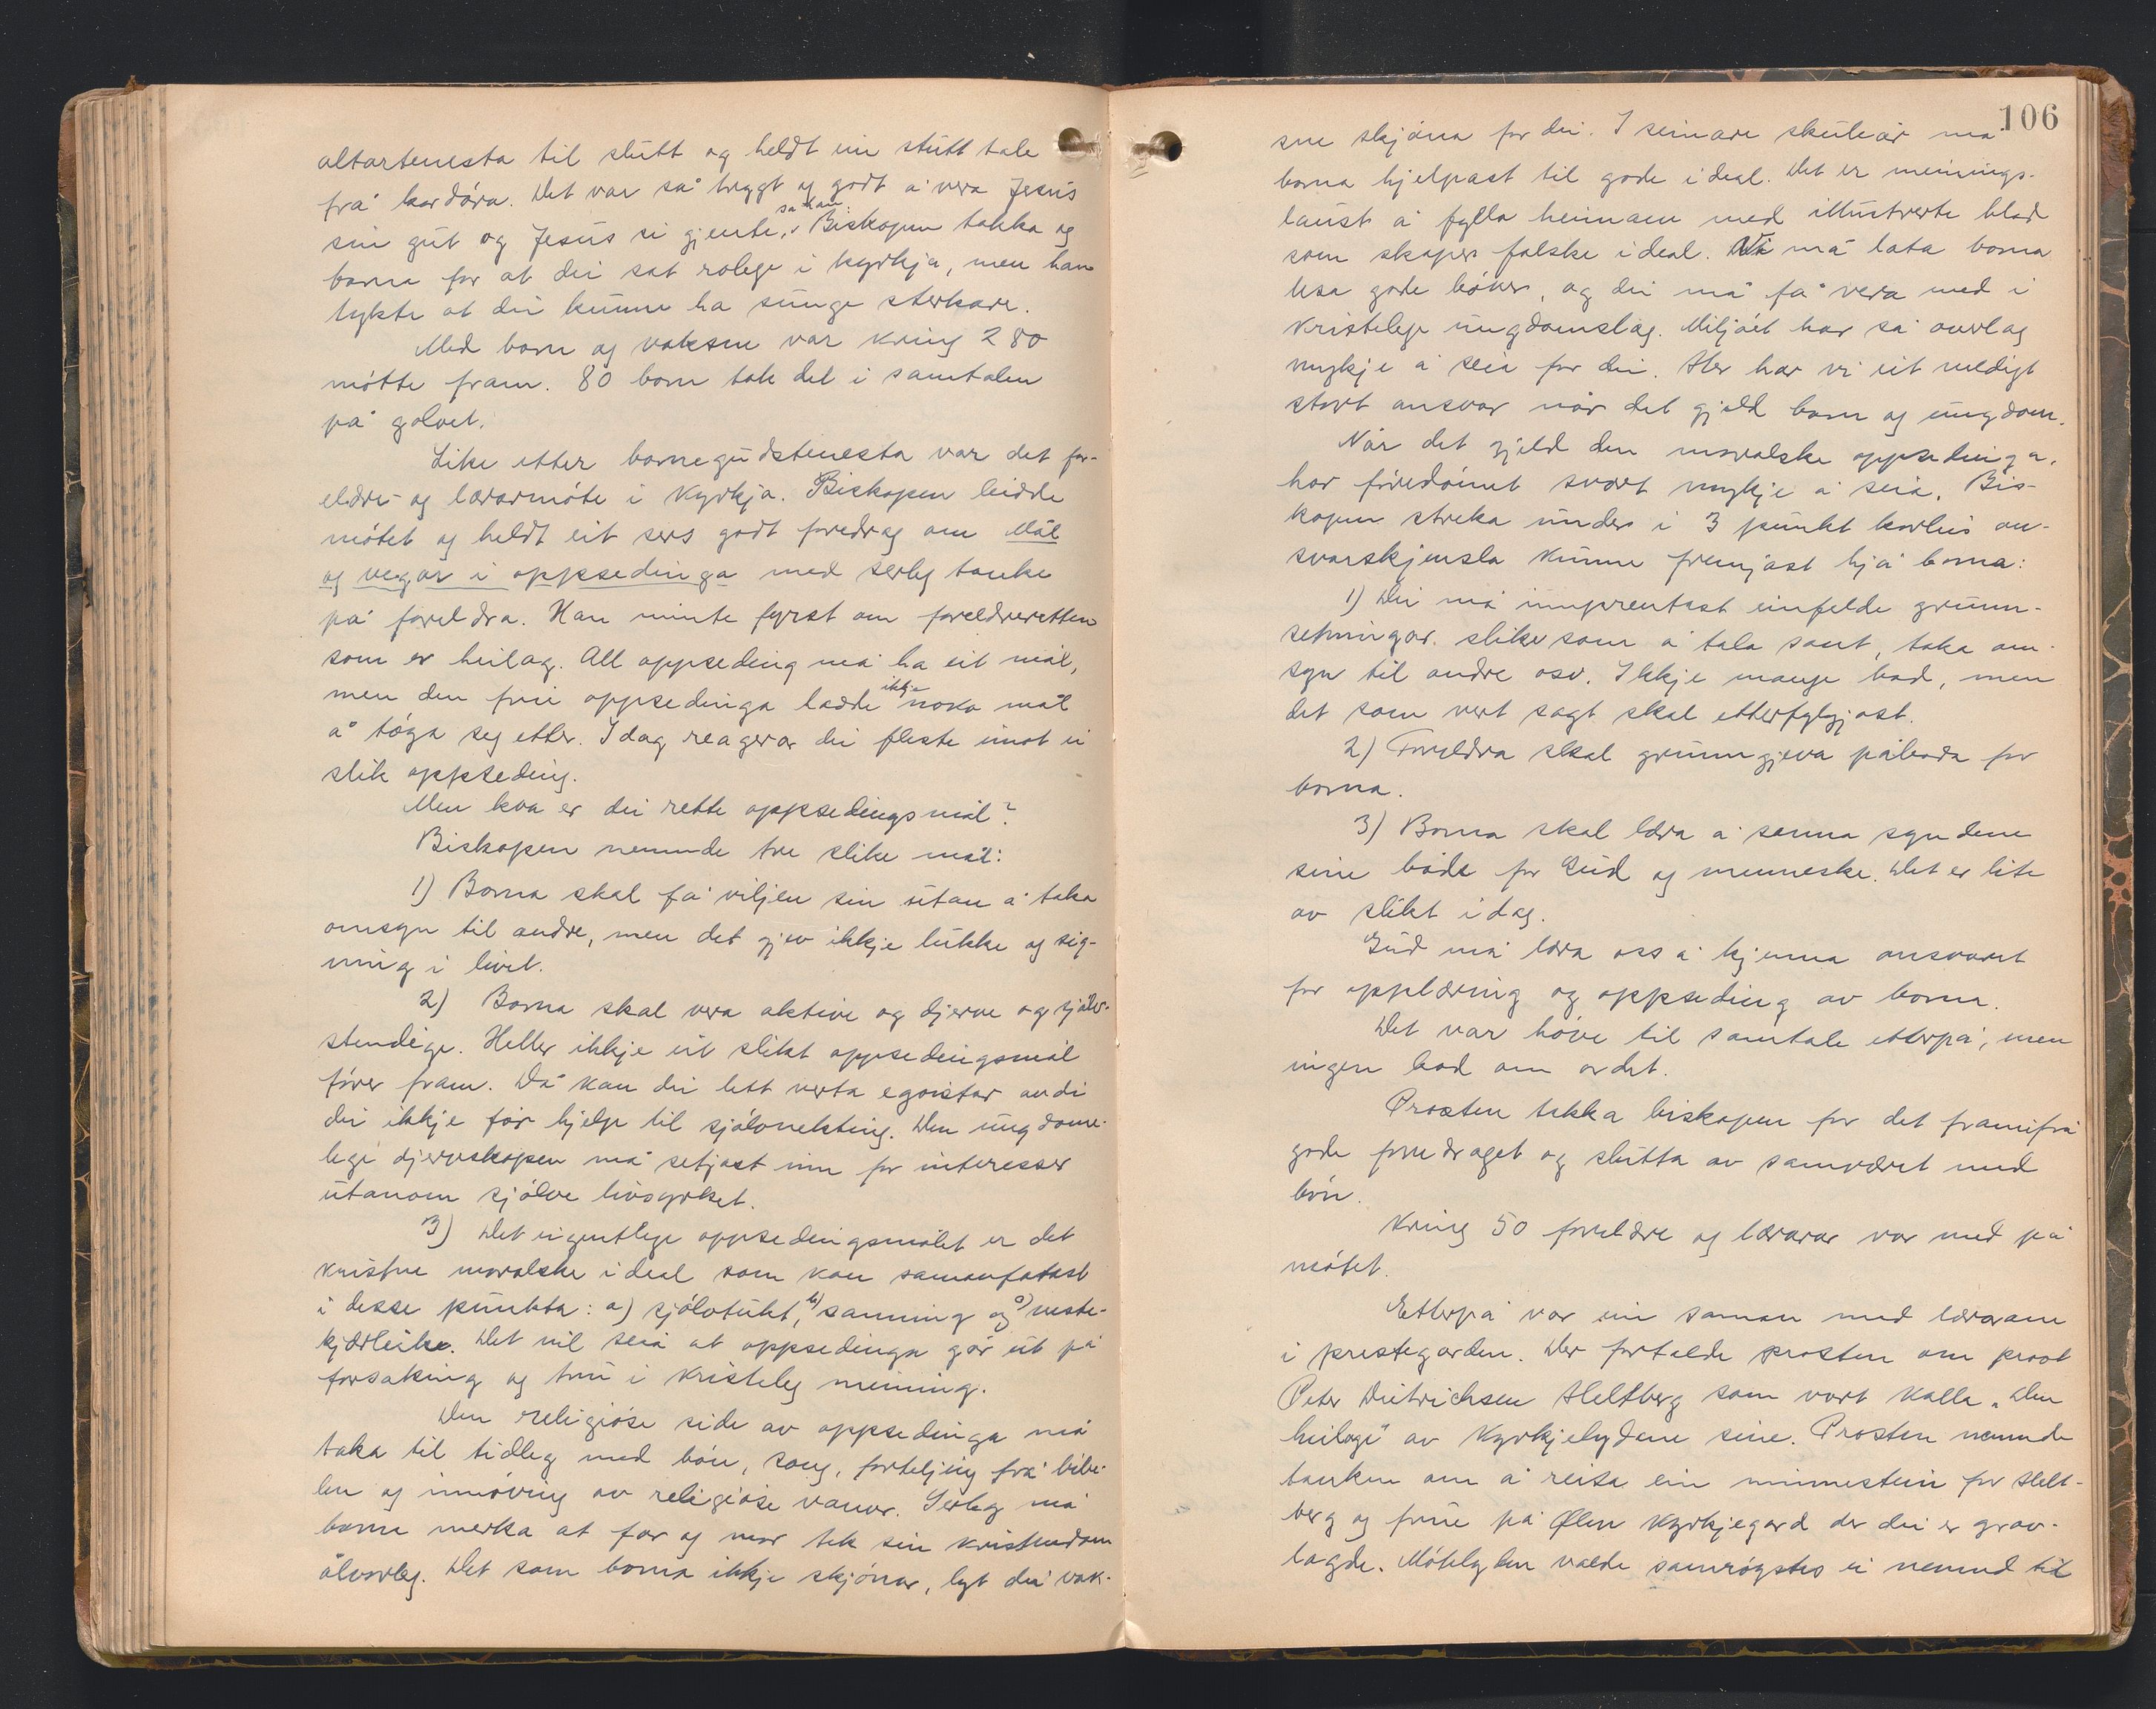 altartenesta til slutt og heldt ein stutt tale
frå kordøra. Det var så trygt og godt å vera Jesus
sin gut og Jesus si gjente, sa han. Biskopen takka og
borna for at dei sat rolege i kyrkja, men han
tykte at dei kunne ha sunge sterkare.
Med born og vaksne var kring 280
møtte fram. 80 born tok del i samtalen
på golvet.
Like etter bornegudstenesta var det for-
eldre- og lærarmøte i kyrkja. Biskopen leidde
møtet og heldt eit sers godt foredrag om Mål
og vegar i oppsedinga med serleg tanke
på foreldra. Han minte fyrst om foreldreretten
som er heilag. All oppseding må ha eit mål,
men den frie oppsedinga hadde ikkje noko mål
å tøga seg etter. I dag reagerar dei fleste imot ei
slik oppseding.
Men kva er dei rette oppsedingsmål?
Biskopen nemnde tre slike mål:
1) Borna skal få viljen sin utan å taka
omsyn til andre, men det gjev ikkje lukke og sig-
ning i livet.
2) Borna skal vera aktive og djerve og sjølv-
stendige. Heller ikkje eit slikt oppsedingsmål
fører fram. Då kan dei lett verta egoistar av di
dei ikkje får hjelp til sjølvnekting. Den ungdome-
lege djervskapen må setjast inn for interesser
utanom sjølve livsyrket.
3) Det eigentlege oppsedingsmålet er det
kristne moralske ideal som kan samanfatast
i desse punkta: a) sjølvtukt, b) sanning og c) neste-
kjærleike. Det vil seia at oppsedinga går ut på
forsaking og tru i kristeleg meining.
Den religiøse side av oppsedinga må
taka til tidleg med bøn, song, forteljing frå bibe-
len og innøving av religiøse vanor. Serleg må
borna merka at far og mor tek sin kristendom
ålvorleg. Det som borna ikkje skjønar, lyt dei vak-
106
sne skjøna for dei. I seinare skuleår må
borna hjelpast til gode ideal. Det er meinings-
laust å fylla heimane med illustrerte blad
som skaper falske ideal. Vi må lata borna
lesa gode bøker, og dei må få vera med i
kristelege ungdomslag. Miljøet har så ovlag
mykje å seia for dei. Her har vi eit veldigt
stort ansvar når det gjeld born og ungdom.
Når det gjeld den moralske oppsedinga,
har føredømet svært mykje å seia. Bis-
kopen streka under i 3 punkt korleis an-
svarskjensla kunne fremjast hjå borna:
1) Dei må innprentast einfelde grunn-
setningar. slike som å tala sant, taka om-
syn til andre osv. Ikkje mange bod, men
det som vert sagt skal etterfylgjast.
2) Foreldra skal grunngjeva påboda for
borna.
3) Borna skal læra å sanna syndene
sine både for Gud og menneske. Det er lite
av slikt i dag.
Gud må læra oss å kjenna ansvaret
for opplæring og oppseding av borna.
Det var høve til samtale etterpå, men
ingen bad om ordet.
Prosten takka biskopen for det framifrå
gode foredraget og slutta av samværet med
bøn.
Kring 50 foreldre og lærarar var med på
møtet.
Etterpå var ein saman med lærarane
i prestegarden. Der fortalde prosten om prost
Peter Dietrichsen Heltberg som vart kalla "den
heilage" av kyrkjelydene sine. Prosten nemnde
tanken om å reisa ein minnestein for Helt-
berg og frue på Ølen kyrkjegard der dei er grav-
lagde. Møtelyden valde samrøystes ei nemnd til